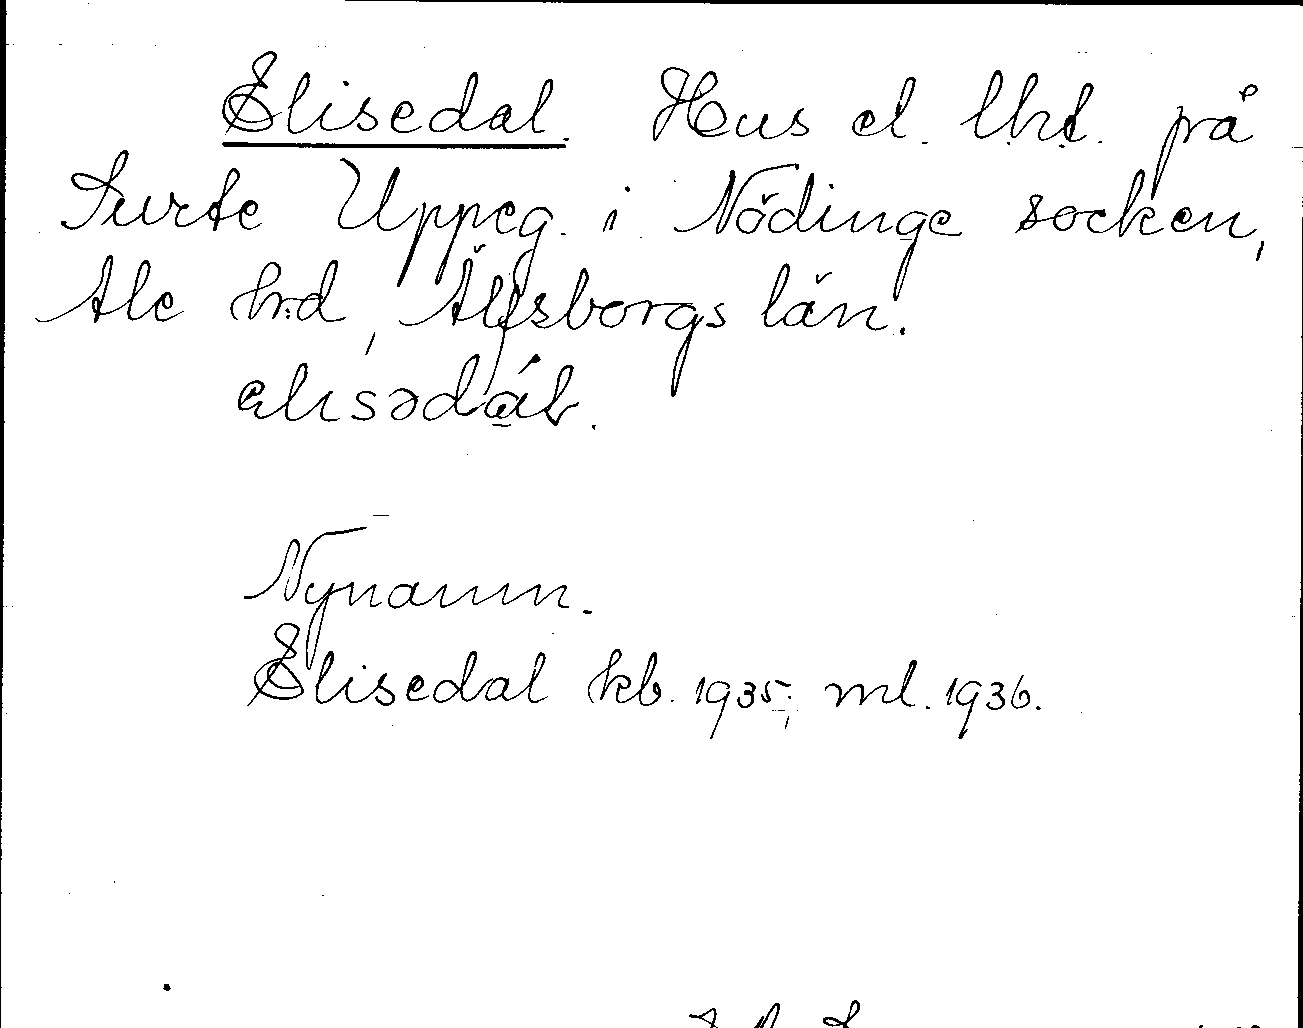 Elisedal. Hus el. lht. på
Surte Uppeg. i Nödinge socken,
Ale hd, Älfsborgs län.
elisədáł.
Nynamn.
Elisedal kb. 1935; ml. 1936.